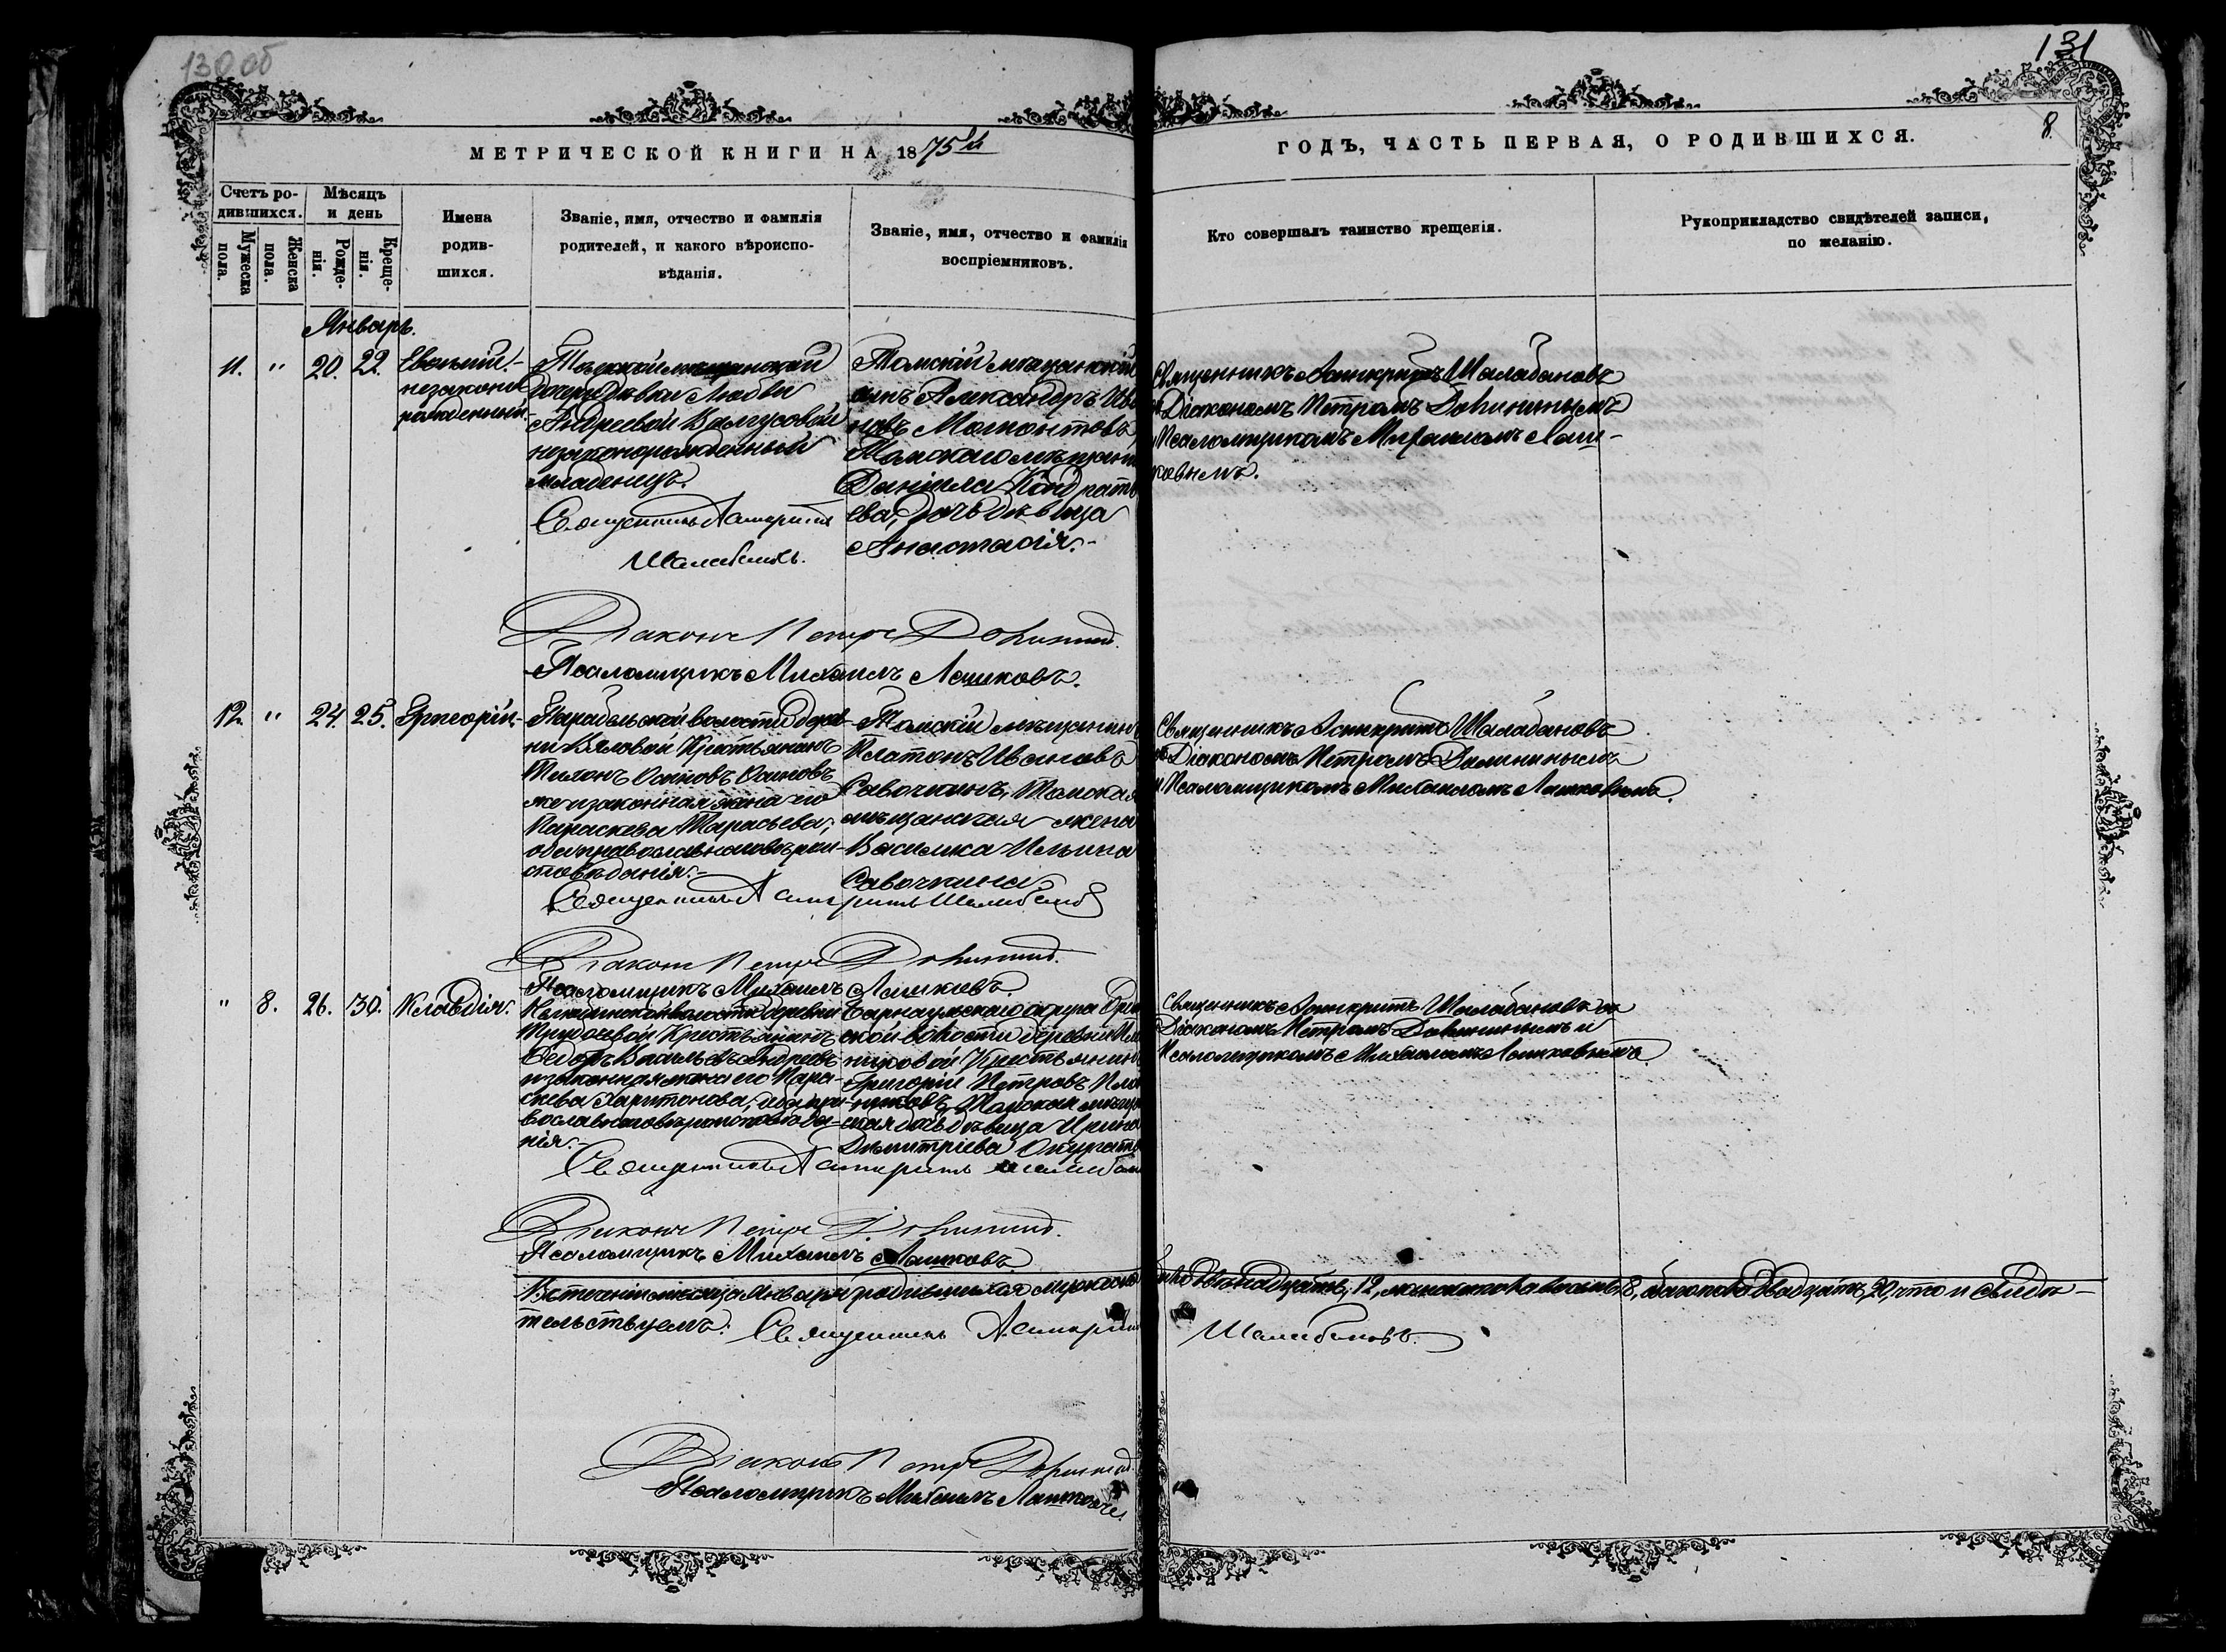 130об
131
8.
МЕТРИЧЕСКОЙ КНИГИ НА 1875й
ГОДЪ, ЧАСТЬ ПЕРВАЯ, О РОДИВШИХСЯ.
Счетъ ро-
дившихся.
Мужеска
пола.
Женска
пола.
Мѣсяцъ
и день
Рожде-
нія.
Креще-
нія.
Имена
родив-
шихся.
Званіе, имя, отчество и фамилія
родителей, и какого вѣроиспо-
вѣданія.
Званіе, имя, отчество и фамилія
воспріемниковъ.
Кто совершалъ таинство крещенія.
Рукоприкладство свидѣтелей записи,
по желанію.
Январь.
11. " 20. 22.
незаконно
рожденный
Томской мѣщанской
дочери дѣвки Любви
Андреевой
незаконорожденный
младенецъ.
Священникъ Асинкритъ
Шалабановъ.
Томскій мѣщанскій
сынъ Александръ Ива
новъ Мамонтовъ
Томскаго мѣщан
Даніила Кондрать
ева, дочь дѣвица
Анастасія.
Священникъ Асинкритъ Шалабановъ
съ Діакономъ Петромъ
и Псаломщикомъ Михаиломъ Лаш-
ковымъ.
Діаконъ Петръ
Псаломщикъ Михаилъ Лашковъ.
12. " 24. 25. Григорій.
Парабельской волости дерев-
ни Вяловой Крестьянинъ
и законная жена его
Параскева Тарасьева,
оба православнаго вѣрои-
сповѣданія.
Священникъ Асинкритъ Шалабановъ
Томскій мѣщанинъ
Платонъ Ивановъ
Савочкинъ, Томская
мѣщанская жена
Василиса Ильина
Савочкина.
Священникъ Асинкритъ Шалабановъ
съ Діакономъ Петромъ
и Псаломщикомъ Михаиломъ Лашковымъ.
Діаконъ Петръ
Псаломщикъ Михаилъ Лашковъ.
" 8. 26. 30. Клавдія.
волости деревни
Крестьянинъ
Ѳедоръ Васильевъ Андреевъ
и законная жена его Пара-
скева Харитонова, оба пра-
вославнаго вѣроисповѣда-
нія.
Священникъ Асинкритъ
Барнаульскаго округа
ской волости деревни
Крестьянинъ
Григорій Петровъ
Томская мѣщан
ская дочь дѣвица Ирина
Димитріева
Священникъ Асинкритъ Шалабановъ съ
Діакономъ Петромъ и
Псаломщикомъ Михаиломъ Лашковымъ.
Діаконъ Петръ
Псаломщикъ Михаилъ Лашковъ.
Въ теченіи мѣсяца Января родившихся мужеска
пола двѣнадцать, 12, женска пола восемь, 8, обоего пола двадцать, 20, что и свидѣ-
тельствуемъ: Священникъ Асинкритъ
Шалабановъ.
Діаконъ Петръ
Псаломщикъ Михаилъ Лашковъ.